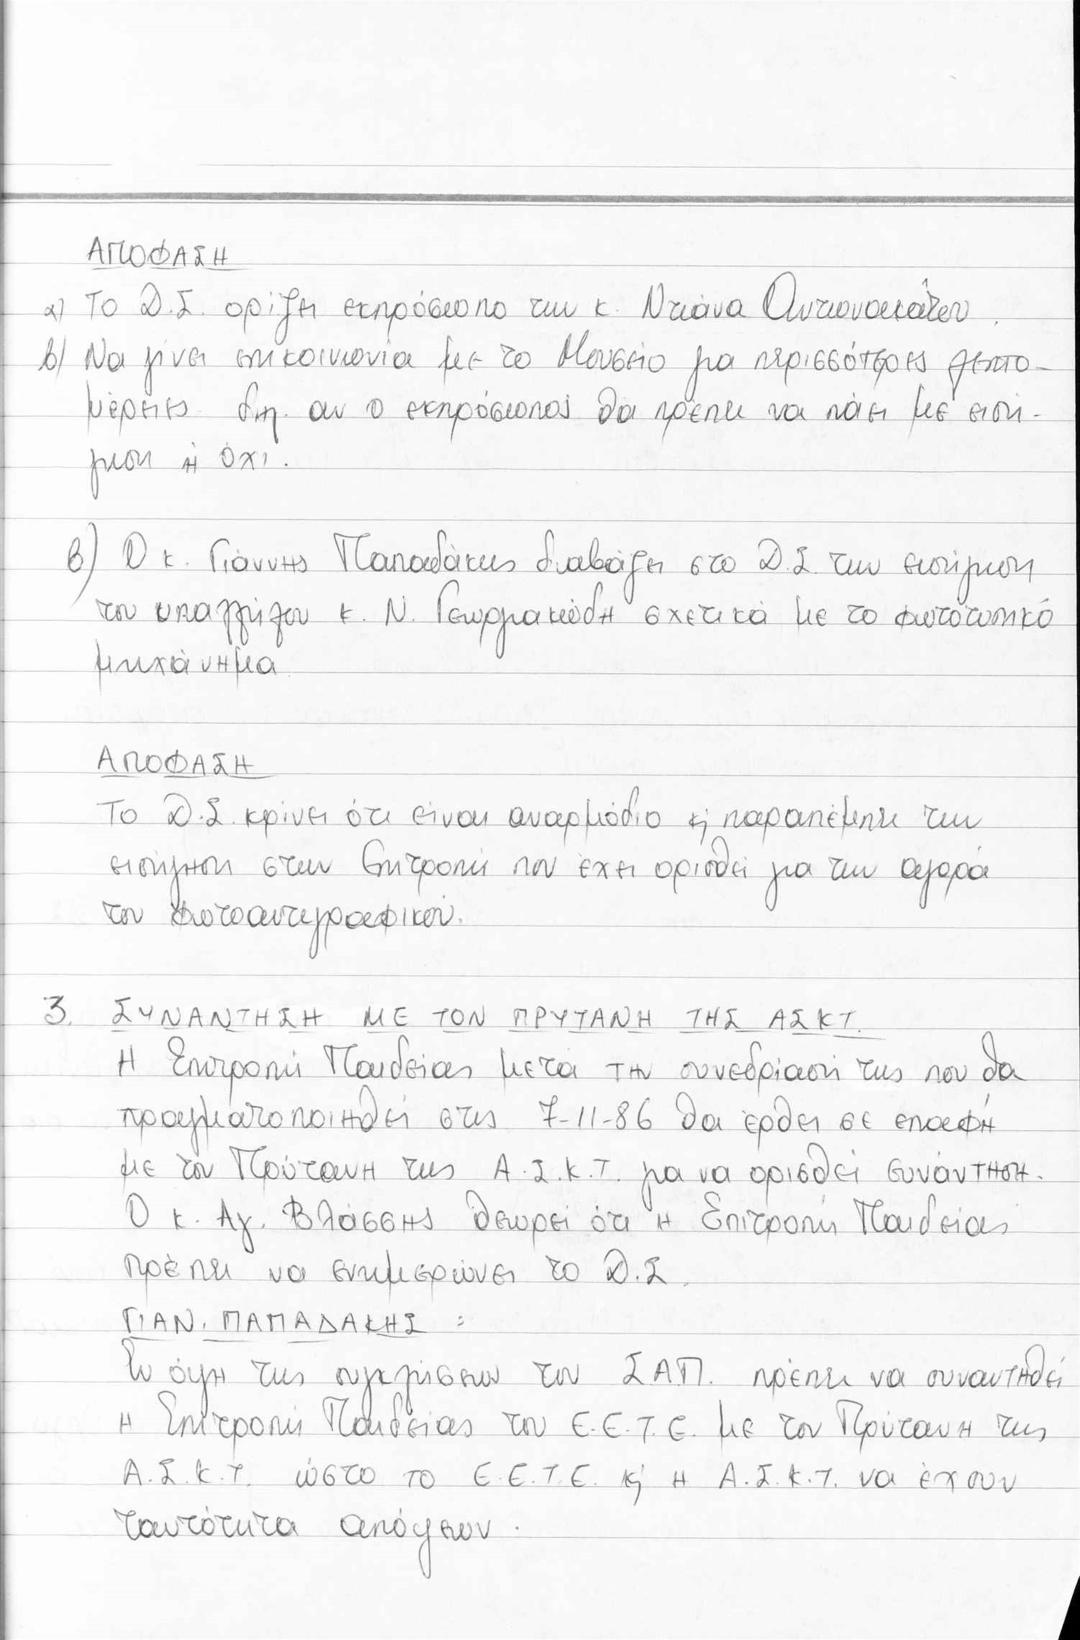 ΑΠΟΦΑΣΗ
α) Το Δ.Σ. ορίζει εκπρόσωπο την κ. Ντιάνα Αντωνακάτου.
β) Να γίνει επικοινωνία με το Μουσείο για περισσότερες λεπτο-
μέρειες δηλ. αν ο εκπρόσωπος θα πρέπει να πάει με εισή-
γηση ή όχι.
β) Ο κ. Γιάννης Παπαδάκης διαβάζει στο Δ.Σ. την εισήγηση
του υπαλλήλου κ. Ν. Γεωργιακώδη σχετικά με το φωτοτυπικό
μηχάνημα
ΑΠΟΦΑΣΗ
Το Δ.Σ. κρίνει ότι είναι αναρμόδιο κ' παραπέμπει την
εισήγηση στην Επιτροπή που έχει ορισθεί για την αγορά
του φωτοαντιγραφικού.
3. ΣΥΝΑΝΤΗΣΗ ΜΕ ΤΟΝ ΠΡΥΤΑΝΗ ΤΗΣ ΑΣΚΤ.
Η Επιτροπή Παιδείας μετά τη συνεδρίασή της που θα
πραγματοποιηθεί στις 7-11-86 θα έρθει σε επαφή
με τον Πρύτανη της Α.Σ.Κ.Τ. για να ορισθεί συνάντηση.
Ο κ. Αγ. Βλάσσης θεωρεί ότι η Επιτροπή Παιδείας
πρέπει να ενημερώνει το Δ.Σ.
ΓΙΑΝ. ΠΑΠΑΔΑΚΗΣ :
Εν όψη της συγκλήσεων του ΣΑΠ. πρέπει να συναντηθεί
η Επιτροπή Παιδείας του Ε.Ε.Τ.Ε. με τον Πρύτανη της
Α.Σ.Κ.Τ. ώστο το Ε.Ε.Τ.Ε. κ' η Α.Σ.Κ.Τ. να έχουν
ταυτότητα απόψεων.